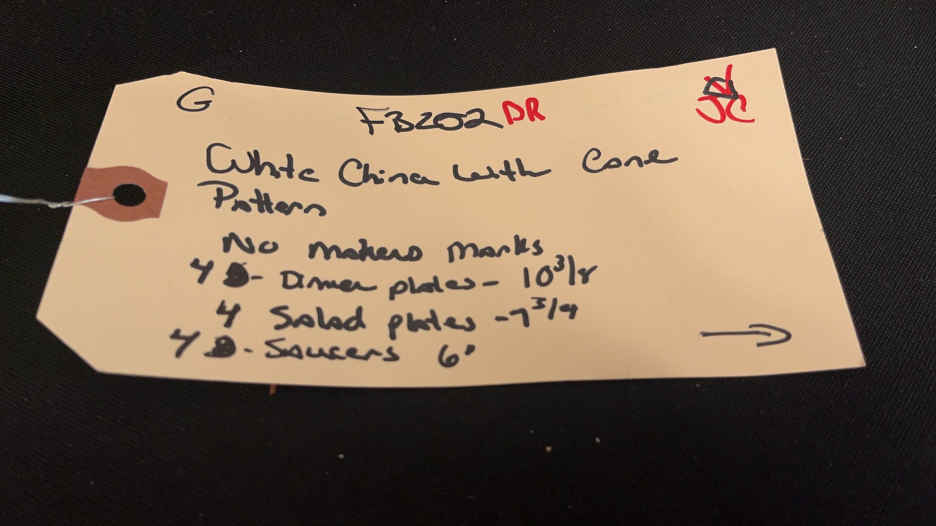 G
FB202 DR
JC
White China with Cone
Pattern
No makers marks
4 - Dinner plates - 10 3/8
4 Salad plates - 7 3/4
4 - Saucers 6"